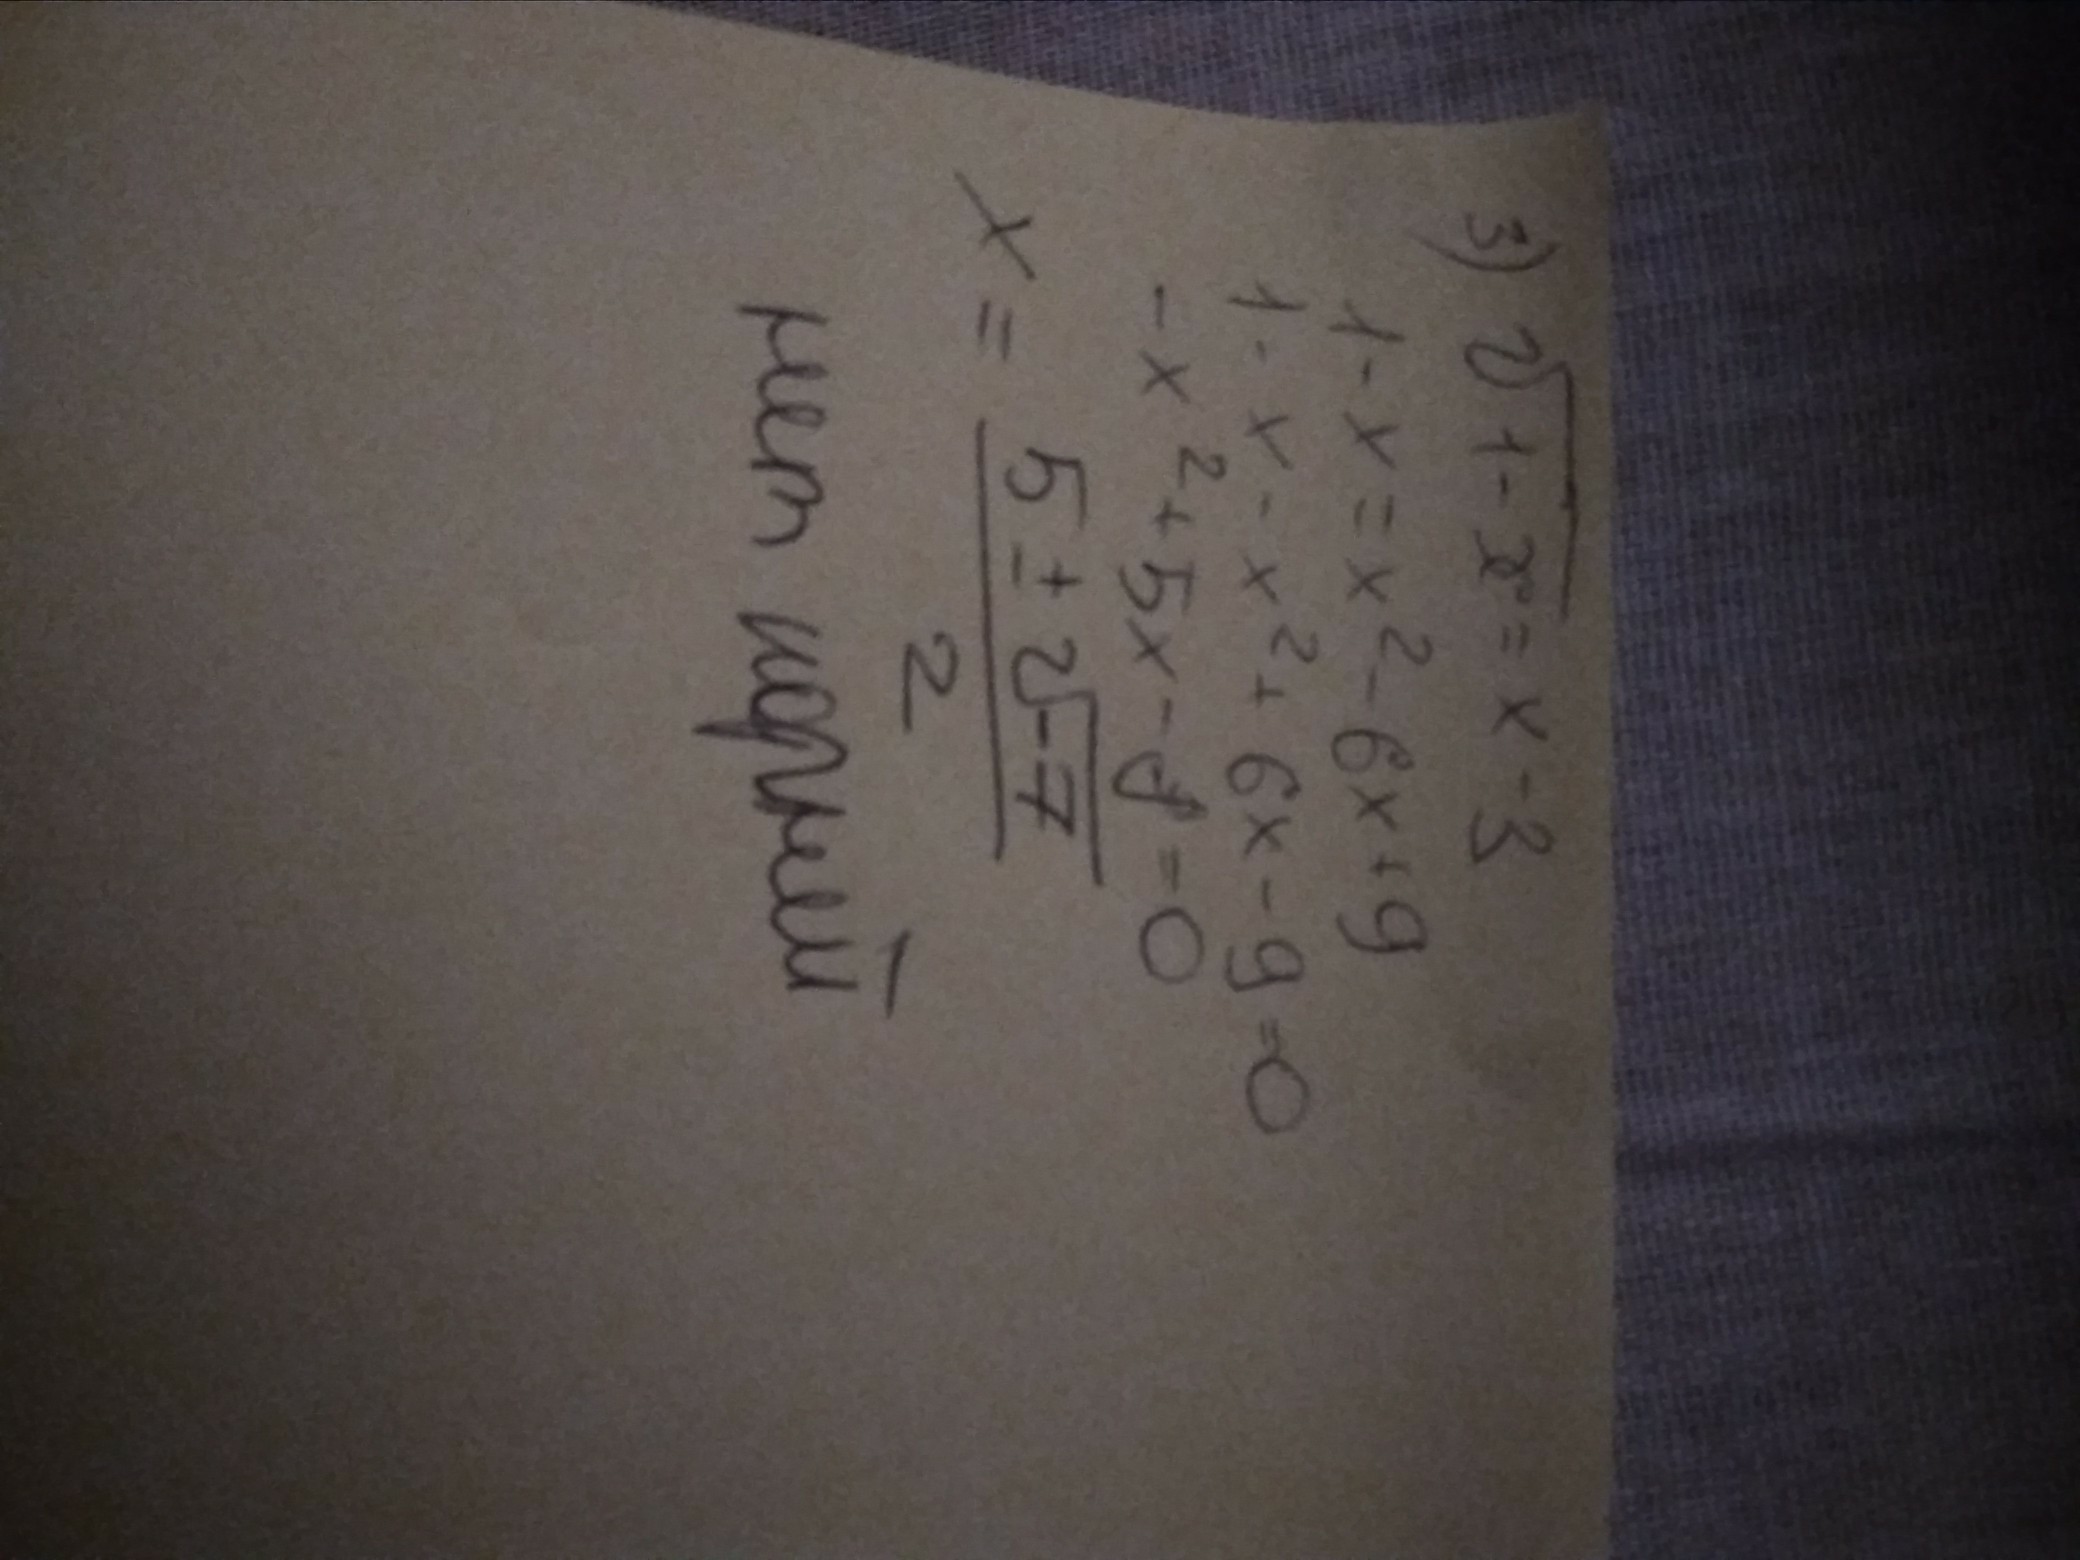 3) √1-x = x-3
1-x=x²-6x+9
1-x-x²+6x-9=0
-x²+5x-8=0
x = 5±√-7
2
нет корней